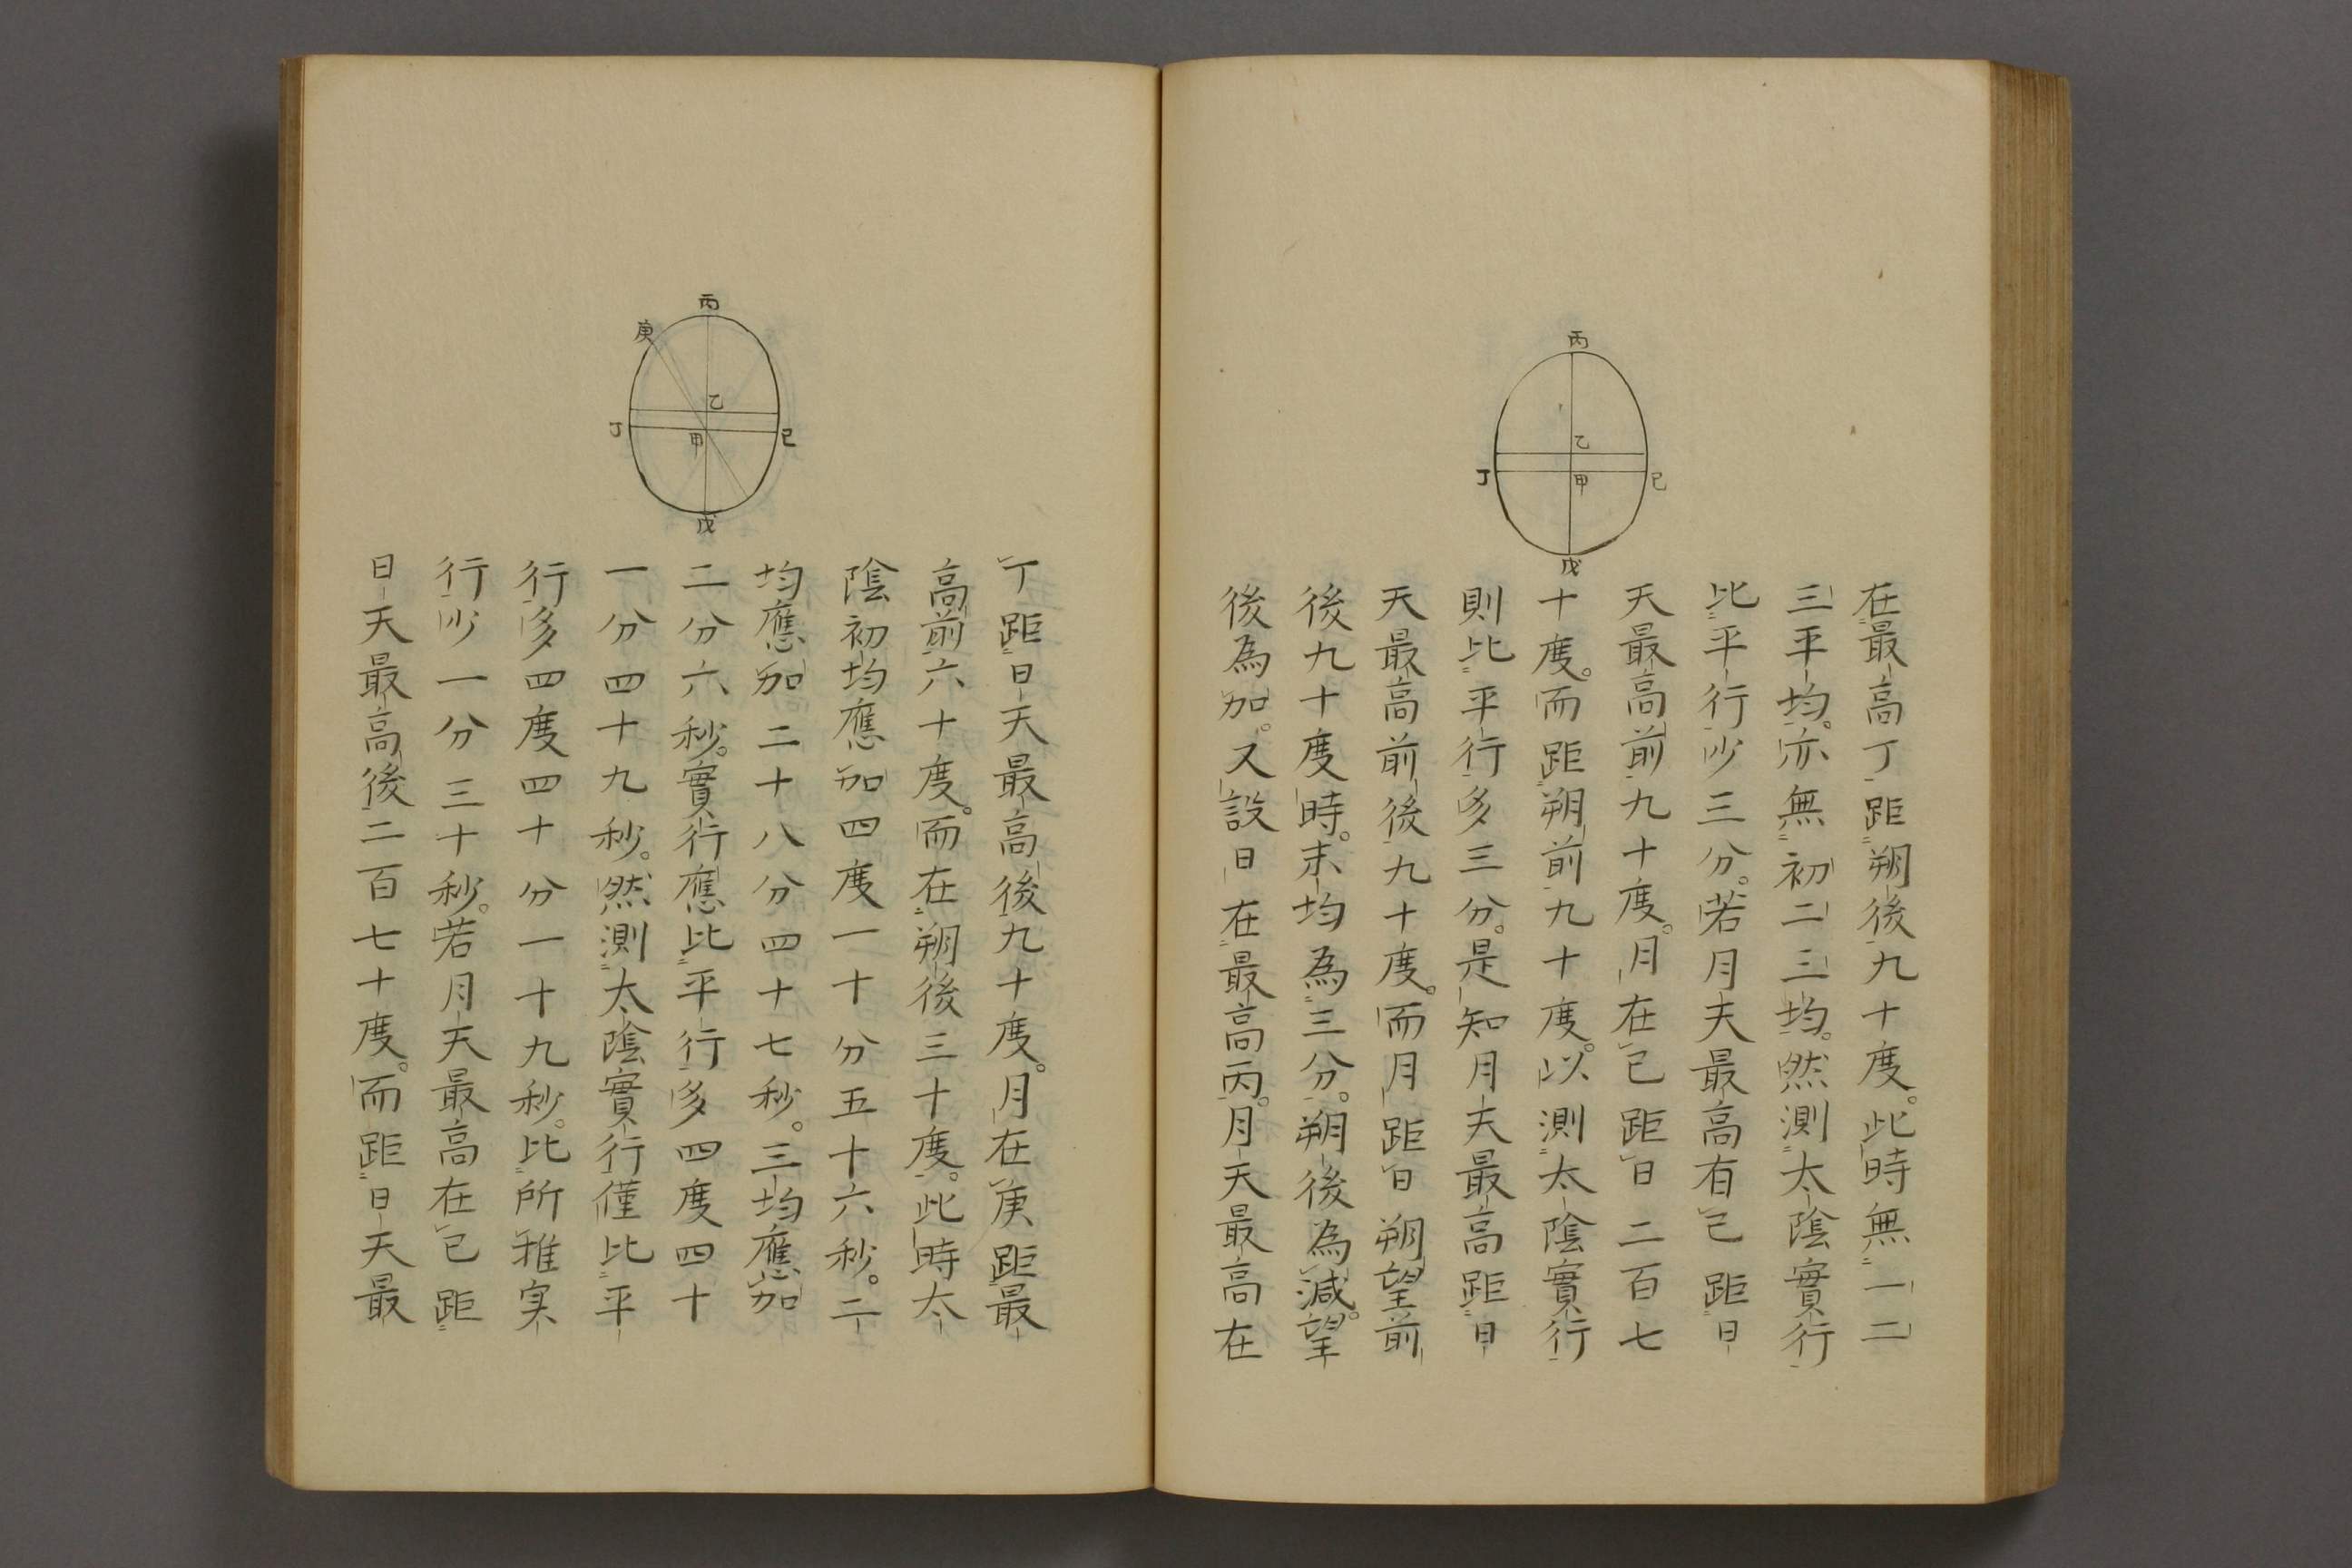 丙
乙
丁
甲
巳
戊
在最高丁距朔後九十度。此時無一二
三平均。亦無初二三均。然測太陰實行
比平行少三分。若月天最高有己距日
天最高前九十度。月在己距日二百七
十度。而距朔前九十度。以測太陰實行
則比平行多三分。是知月天最高距日
天最高前後九十度。而月距日朔望前
後九十度時。末均為三分。朔後為減。望
後為加。又設日在最高丙。月天最高在
丙
庚
乙
丁
甲
巳
戊
丁距日天最高後九十度。月在庚距最
高前六十度。而在朔後三十度。此時太
陰初均應加四度一十分五十六秒。二
均應加二十八分四十七秒。三均應加
二分六秒。實行應比平行多四度四十
一分四十九秒。然測太陰實行僅比平
行多四度四十分一十九秒。比所推実
行少一分三十秒。若月天最高在己距
日天最高後二百七十度。而距日天最